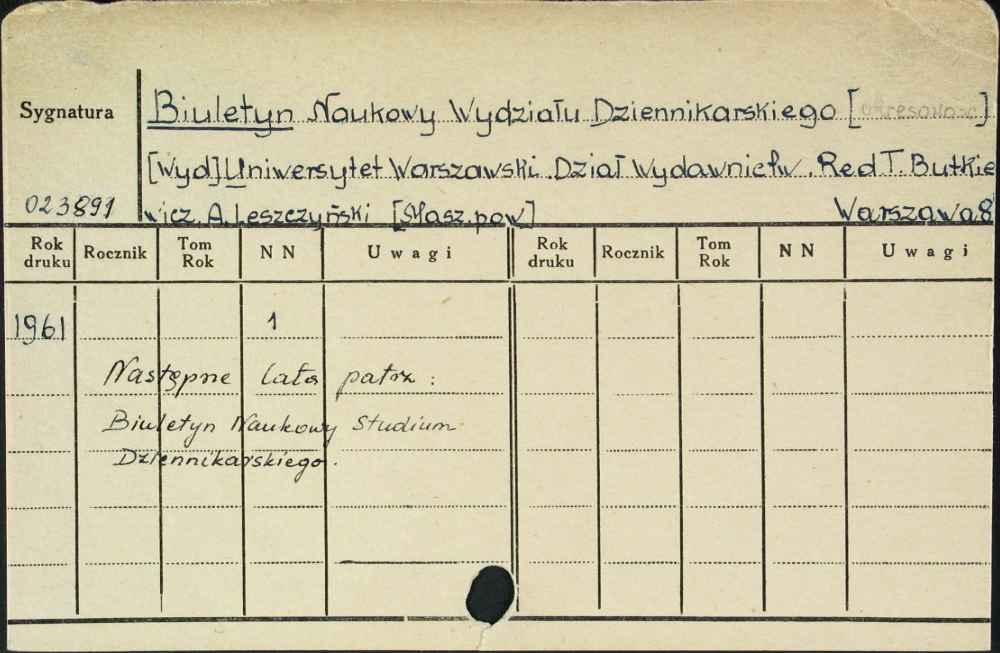 Sygnatura
Biuletyn Naukowy Wydziału Dziennikarskiego [ ]
[Wyd] Uniwersytet Warszawski. Dział Wydawnictw. Red T. Butkie
023891
wicz, A. Leszczyński [Masz. pow] Warszawa 8°
Rok druku Rocznik Tom Rok N N Uwagi Rok druku Rocznik Tom Rok N N Uwagi
1961 1
Następne lata patrz:
Biuletyn Naukowy Studium
Dziennikarskiego.